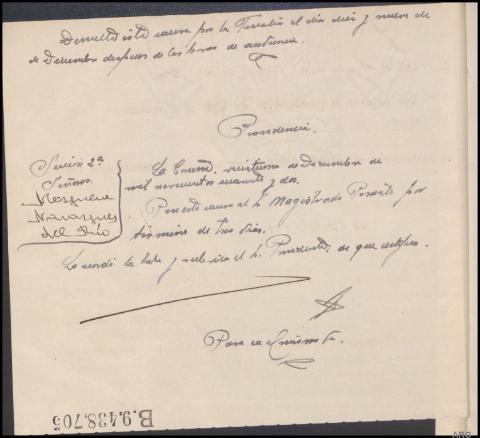 Devuelta esta causa por la Fiscalía el día diez y nueve de
de Diciembre despues de las horas de audiencia.
Providencia.
Sección 2ª
Señores
Mosquera
Navazques
del Río
La Coruña, veintiuno de Diciembre de
mil novecientos cuarenta y dos.
Pase esta causa al Sr Magistrado Ponente por
término de tres días.
Lo acordó la Sala y rubrica el Sr. Presidente, de que certifico.
B.9.438.705
ARG